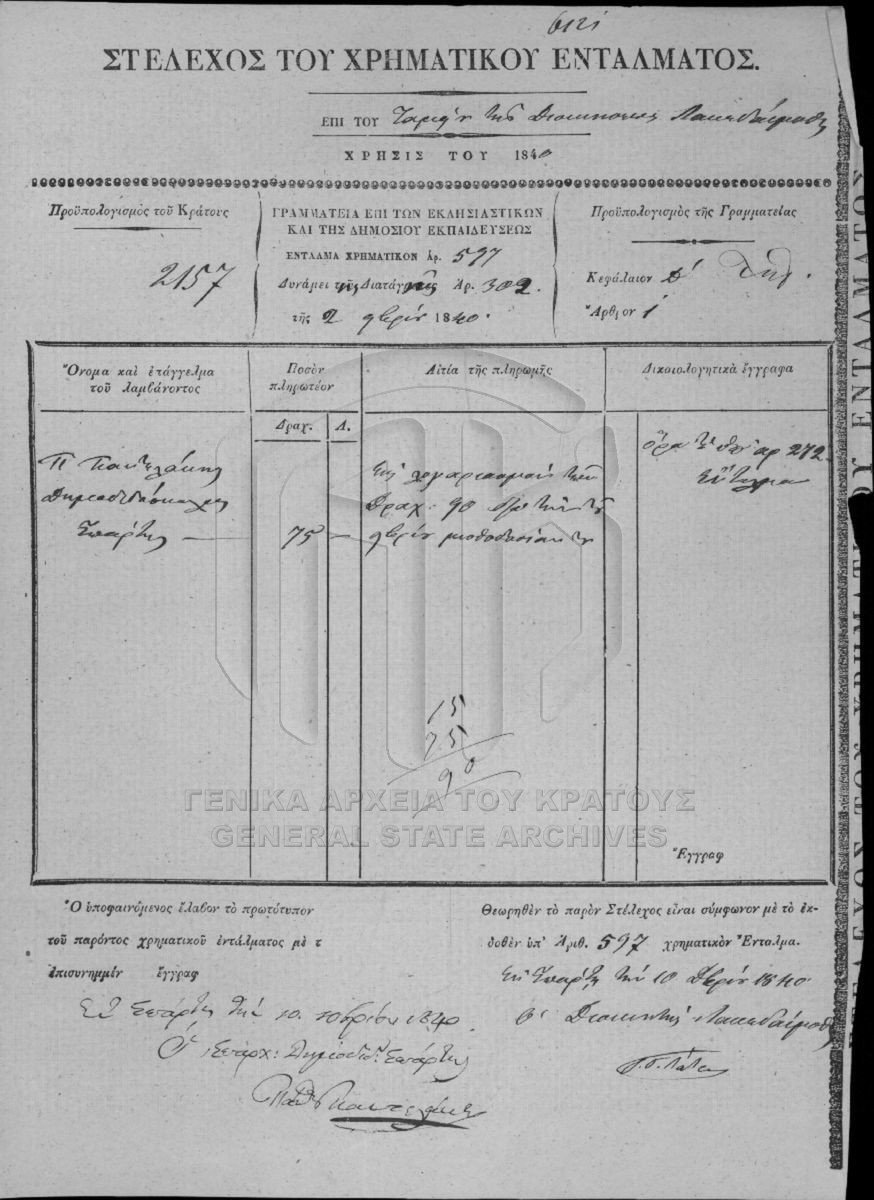 ΣΤΕΛΕΧΟΣ ΤΟΥ ΧΡΗΜΑΤΙΚΟΥ ΕΝΤΑΛΜΑΤΟΣ.
ΕΠΙ ΤΟΥ Ταμίου της Διοικήσεως Λακεδαίμονος
ΧΡΗΣΙΣ ΤΟΥ 1840
Προϋπολογισμὸς τοῦ Κράτους
2157
ΓΡΑΜΜΑΤΕΙΑ ΕΠΙ ΤΩΝ ΕΚΛΗΣΙΑΣΤΙΚΩΝ
ΚΑΙ ΤΗΣ ΔΗΜΟΣΙΟΥ ΕΚΠΑΙΔΕΥΣΕΩΣ
ΕΝΤΑΛΜΑ ΧΡΗΜΑΤΙΚΟΝ Ἀρ. 597
Δυνάμει τῆς Διαταγῆς Ἀρ. 302.
τῆς 2 9βρίου 1840.
Προϋπολογισμὸς τῆς Γραμματείας
Κεφάλαιον Δ'
Ἄρθρον 1
Ὄνομα καὶ ἐπάγγελμα
τοῦ λαμβάνοντος
Ποσὸν
πληρωτέον
Αἰτία τῆς πληρωμῆς
Δικαιολογητικὰ ἔγγραφα
Δραχ. Λ.
Π Παντελάκης
Δημοδιδάσκαλος
Σπάρτης — 75 —
Εἰς λογαριασμὸν τῶν
Δραχ: 90 διὰ τὴν τοῦ
9βρίου μισθοδοσίαν του
ὅρα τὸ ὑπ' αρ 272
ἔνταλμα
15
75
90
ΓΕΝΙΚΑ ΑΡΧΕΙΑ ΤΟΥ ΚΡΑΤΟΥΣ
GENERAL STATE ARCHIVES
Ἔγγραφ
Ὁ ὑποφαινόμενος ἔλαβον τὸ πρωτότυπον
τοῦ παρόντος χρηματικοῦ ἐντάλματος μὲ τ
ἐπισυνημμέν ἔγγραφ
Ἐν Σπάρτῃ τὴν 10. 10βρίου 1840
Σπάρτης
Παντελάκης
Θεωρηθὲν τὸ παρὸν Στέλεχος εἶναι σύμφωνον μὲ τὸ ἐκ-
δοθὲν ὑπ' Ἀριθ. 597 χρηματικὸν Ἔνταλμα.
Ἐν Σπάρτῃ τὴν 10 Δβρίου 1840
Ὁ Διοικητὴς Λακεδαίμονος